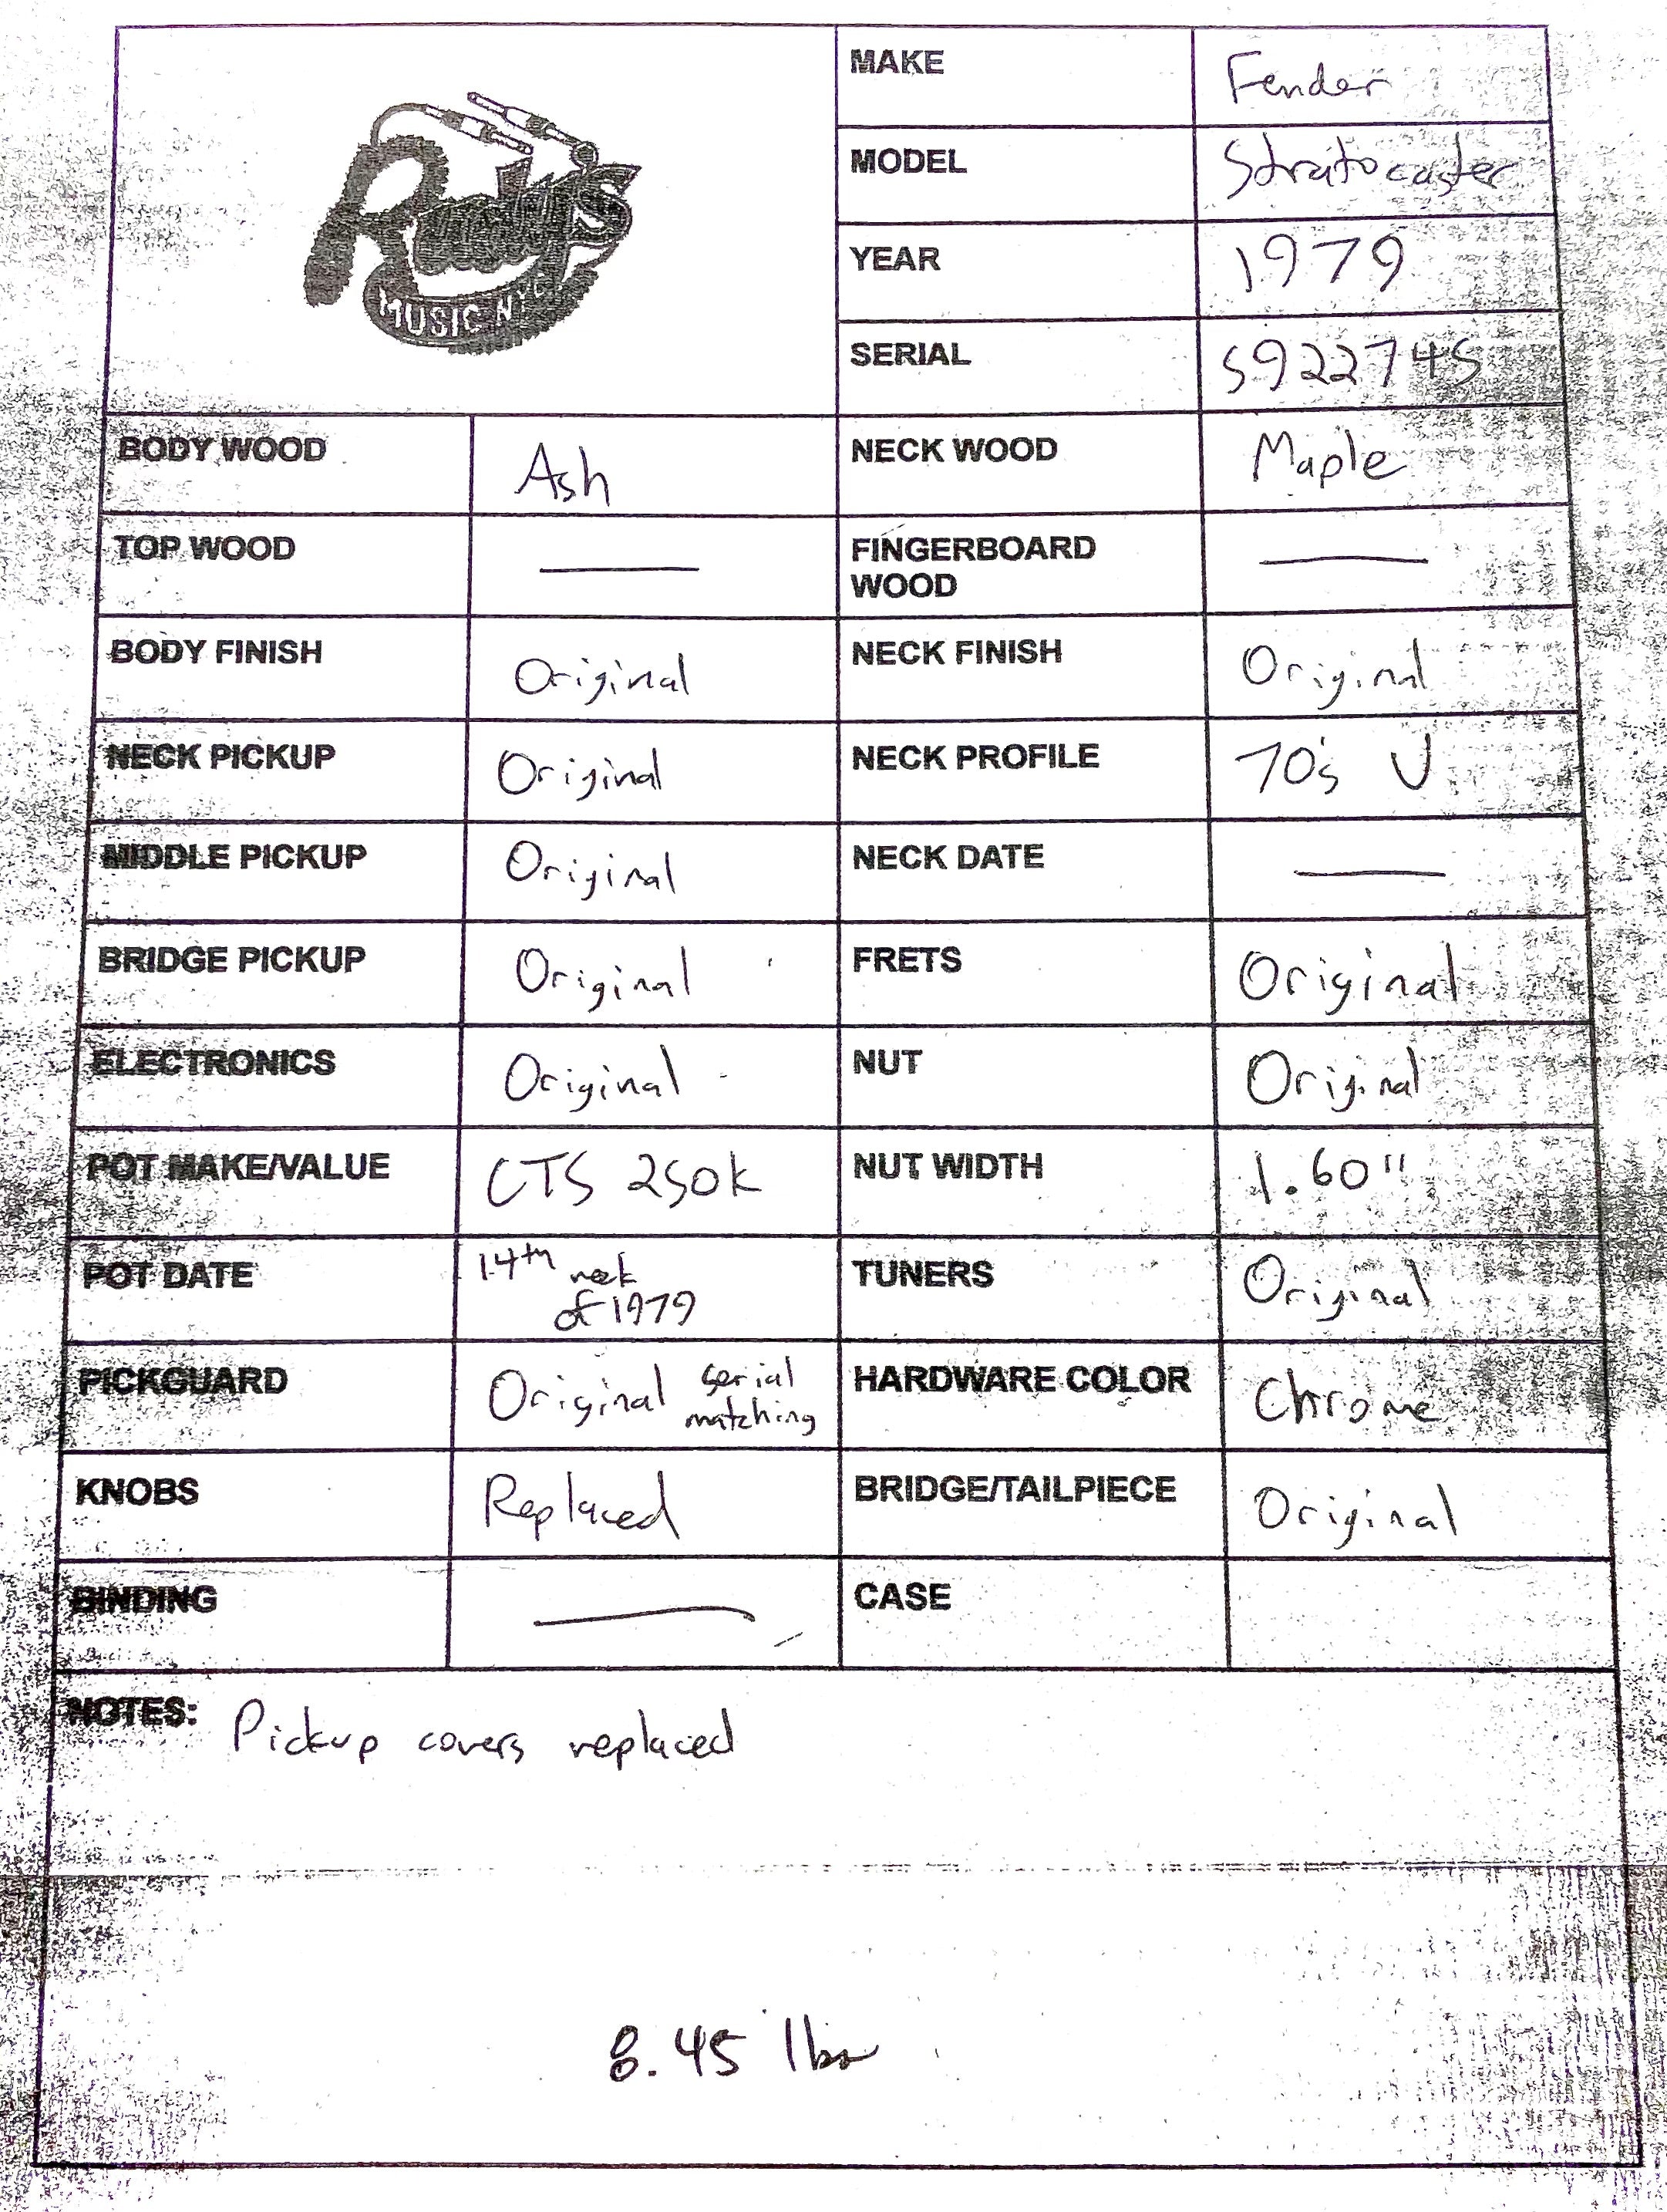 Rudy's
MUSIC NYC
MAKE Fender
MODEL Stratocaster
YEAR 1979
SERIAL S922745
BODY WOOD Ash NECK WOOD Maple
TOP WOOD — FINGERBOARD
WOOD —
BODY FINISH Original NECK FINISH Original
NECK PICKUP Original NECK PROFILE 70's U
MIDDLE PICKUP Original NECK DATE —
BRIDGE PICKUP Original FRETS Original
ELECTRONICS Original NUT Original
POT MAKE/VALUE CTS 250k NUT WIDTH 1.60"
POT DATE 14th week
of 1979 TUNERS Original
PICKGUARD Original serial
matching HARDWARE COLOR Chrome
KNOBS Replaced BRIDGE/TAILPIECE Original
BINDING — CASE
NOTES: Pickup covers replaced
8.45 lbs